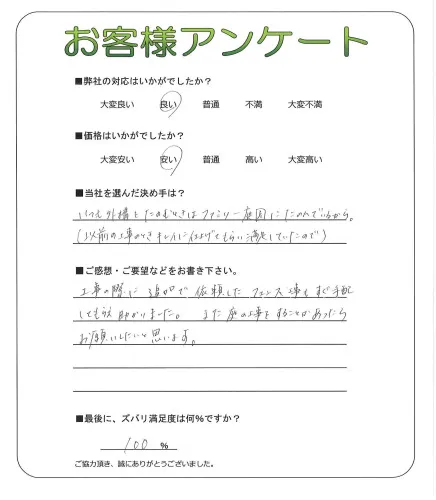 お客様アンケート
■弊社の対応はいかがでしたか？
大変良い 良い 普通 不満 大変不満
■価格はいかがでしたか？
大変安い 安い 普通 高い 大変高い
■当社を選んだ決め手は？
いつも外構をたのむときはファミリー庭園にたのんでいるから。
(以前の工事のときキレイに仕上げてもらい満足していたので)
■ご感想・ご要望などをお書き下さい。
工事の際に追加で依頼したフェンス工事もすぐ手配
してもらえ助かりました。また庭の工事をすることがあったら
お願いしたいと思います。
■最後に、ズバリ満足度は何%ですか？
100 %
ご協力頂き、誠にありがとうございました。